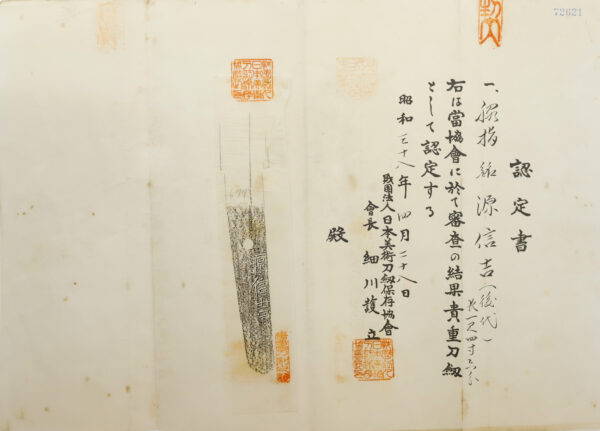 72621
認定書
一、脇指 銘 源信吉(後代)
長一尺四寸
右は當協會に於て審査の結果貴重刀剱
として認定する
昭和三十八年四月二十八日
財團法人日本美術刀剱保存協會
會長 細川護立
殿